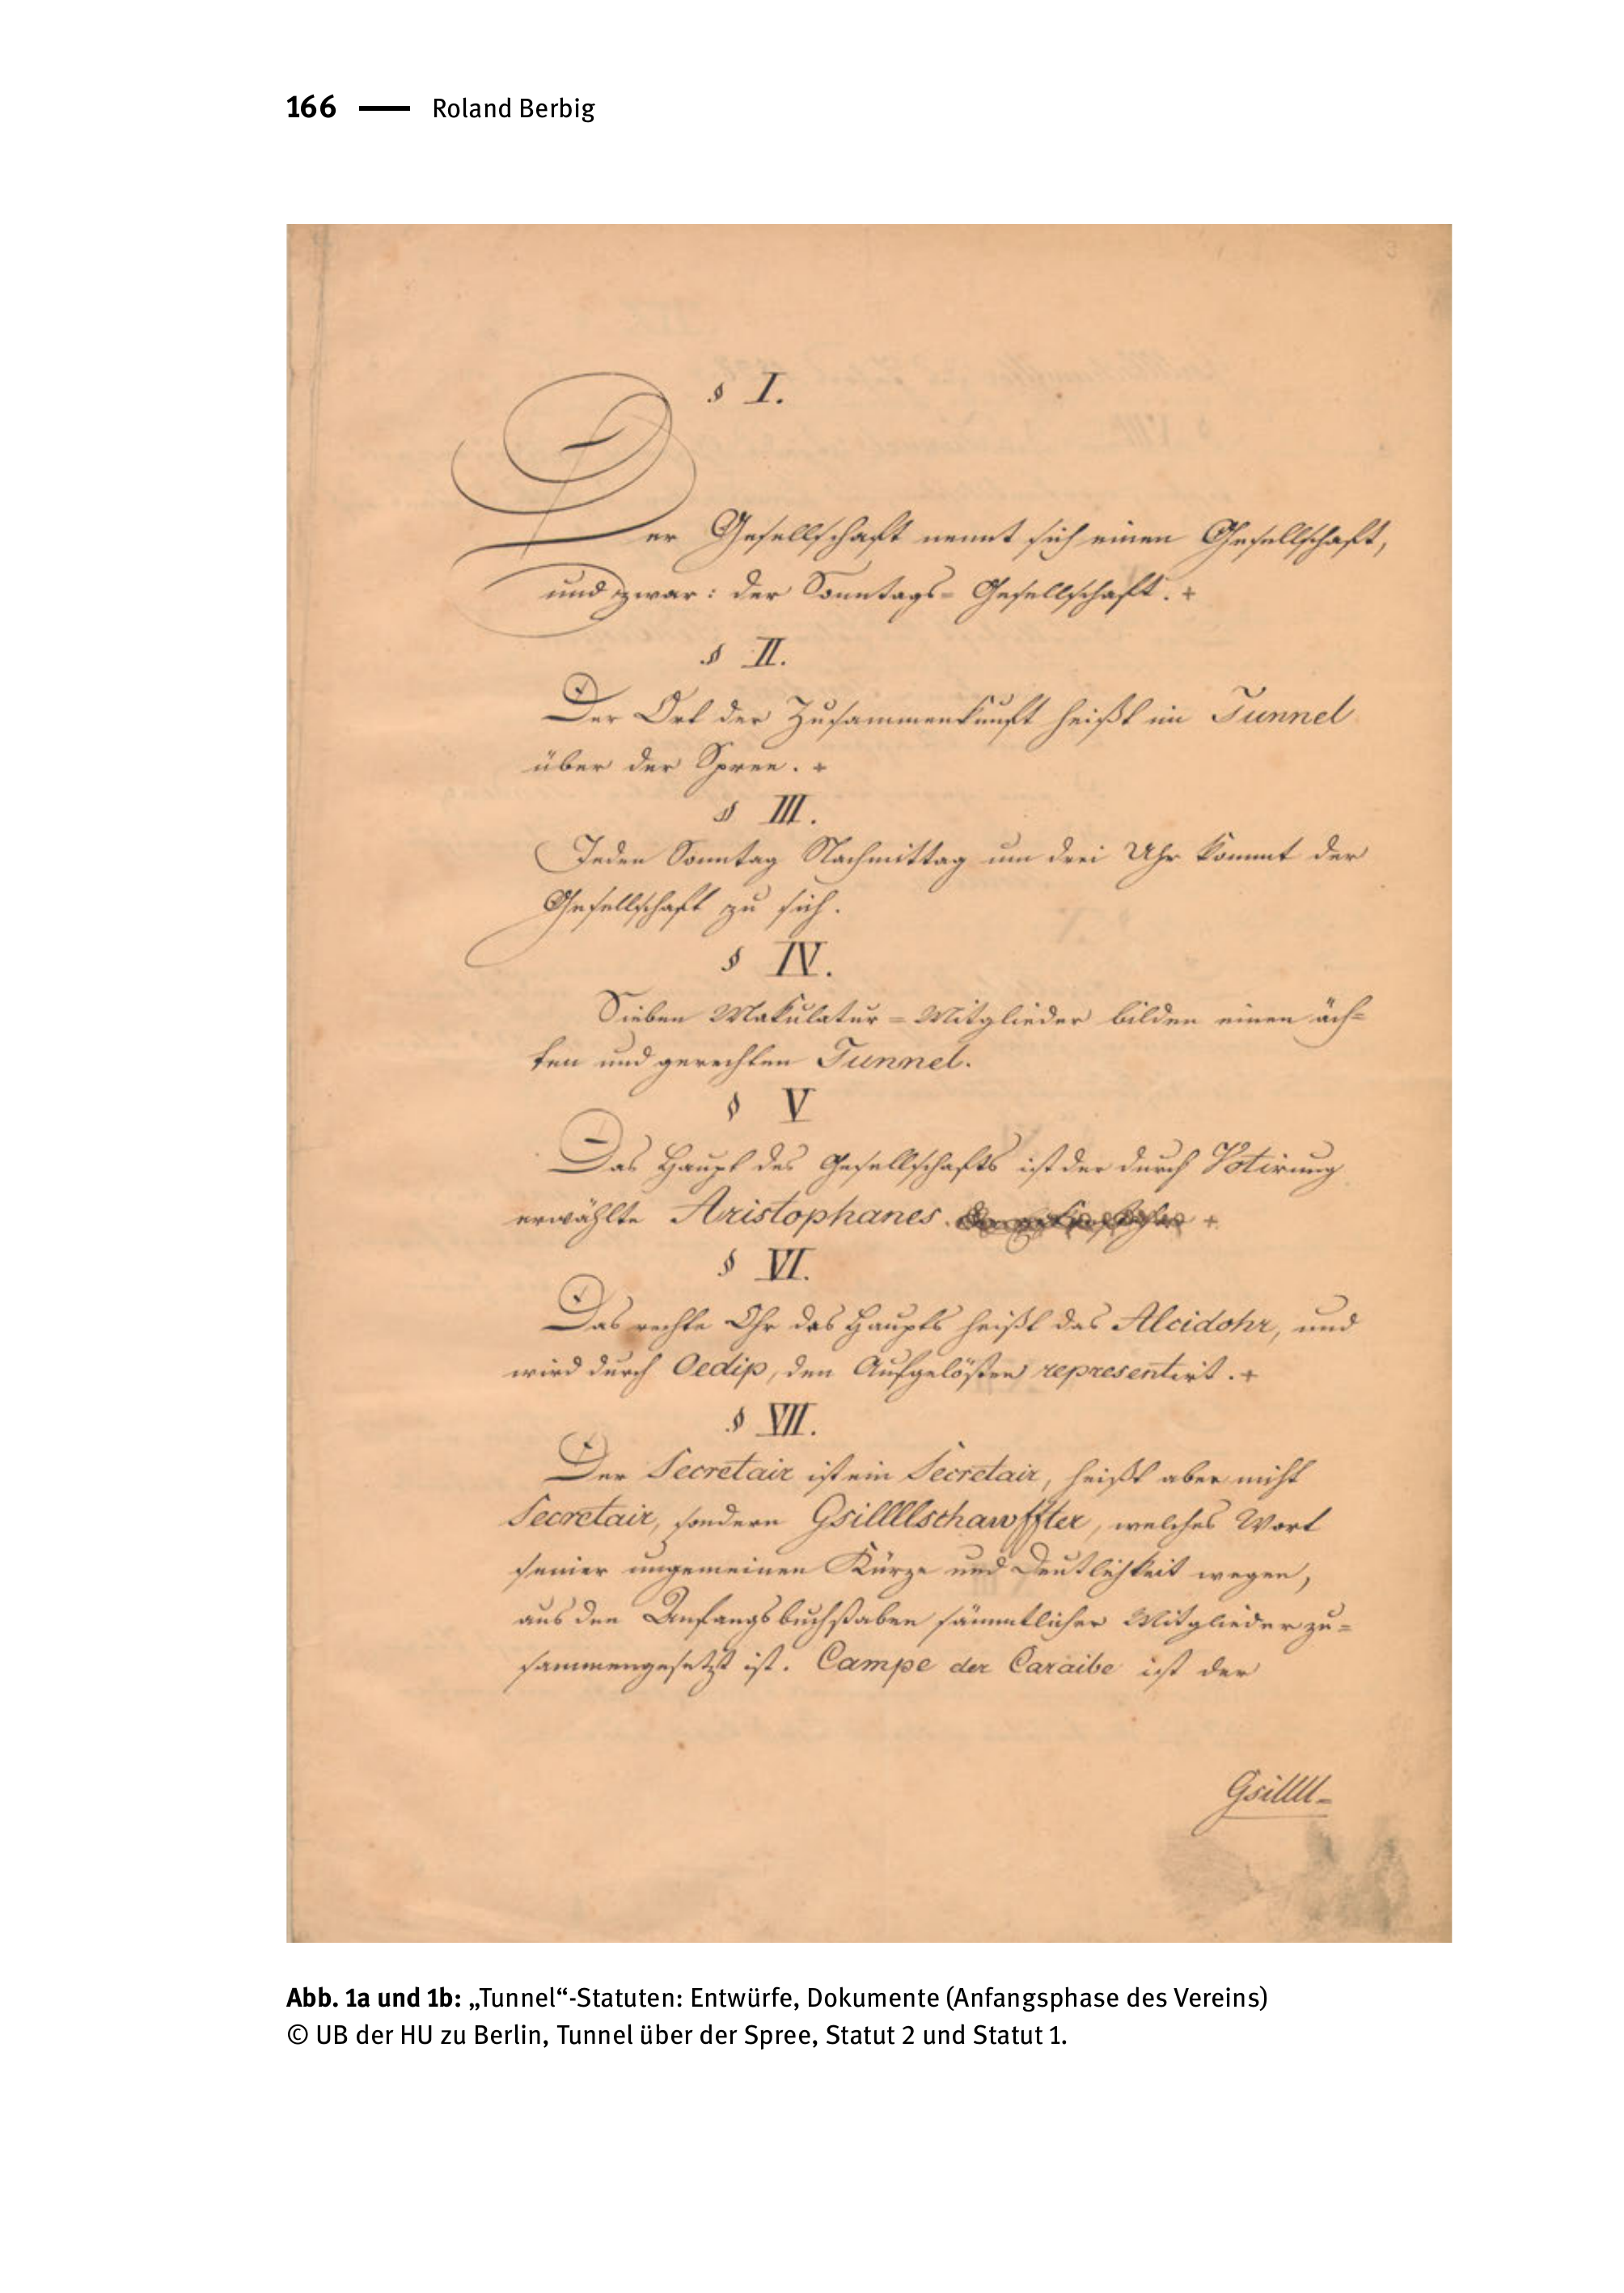 166 — Roland Berbig
§ I.
Der Gesellschaft nennt sich einen Gesellschaft,
und zwar: der Sonntags- Gesellschaft. +
§ II.
Der Ort der Zusammenkunft heißt im Tunnel
über der Spree. +
§ III.
Jeden Sonntag Nachmittag um drei Uhr kommt der
Gesellschaft zu sich.
§ IV.
Sieben Makulatur-Mitglieder bilden einen äch-
ten und gerechten Tunnel.
§ V
Das Haupt des Gesellschafts ist der durch Votirung
erwählte Aristophanes. +
§ VI.
Das rechte Ohr des Haupts heißt das Alcidohr, und
wird durch Oedip, den Aufgelösten representirt. +
§ VII.
Der Secretair ist ein Secretair, heißt aber nicht
Secretair, sondern Gsillllschawffter, welches Wort
seiner ungemeinen Kürze und Deutlichkeit wegen,
aus den Anfangsbuchstaben sämmtlicher Mitglieder zu-
sammengesetzt ist. Campe der Caraibe ist der
Gsillll-
Abb. 1a und 1b: „Tunnel“-Statuten: Entwürfe, Dokumente (Anfangsphase des Vereins)
© UB der HU zu Berlin, Tunnel über der Spree, Statut 2 und Statut 1.